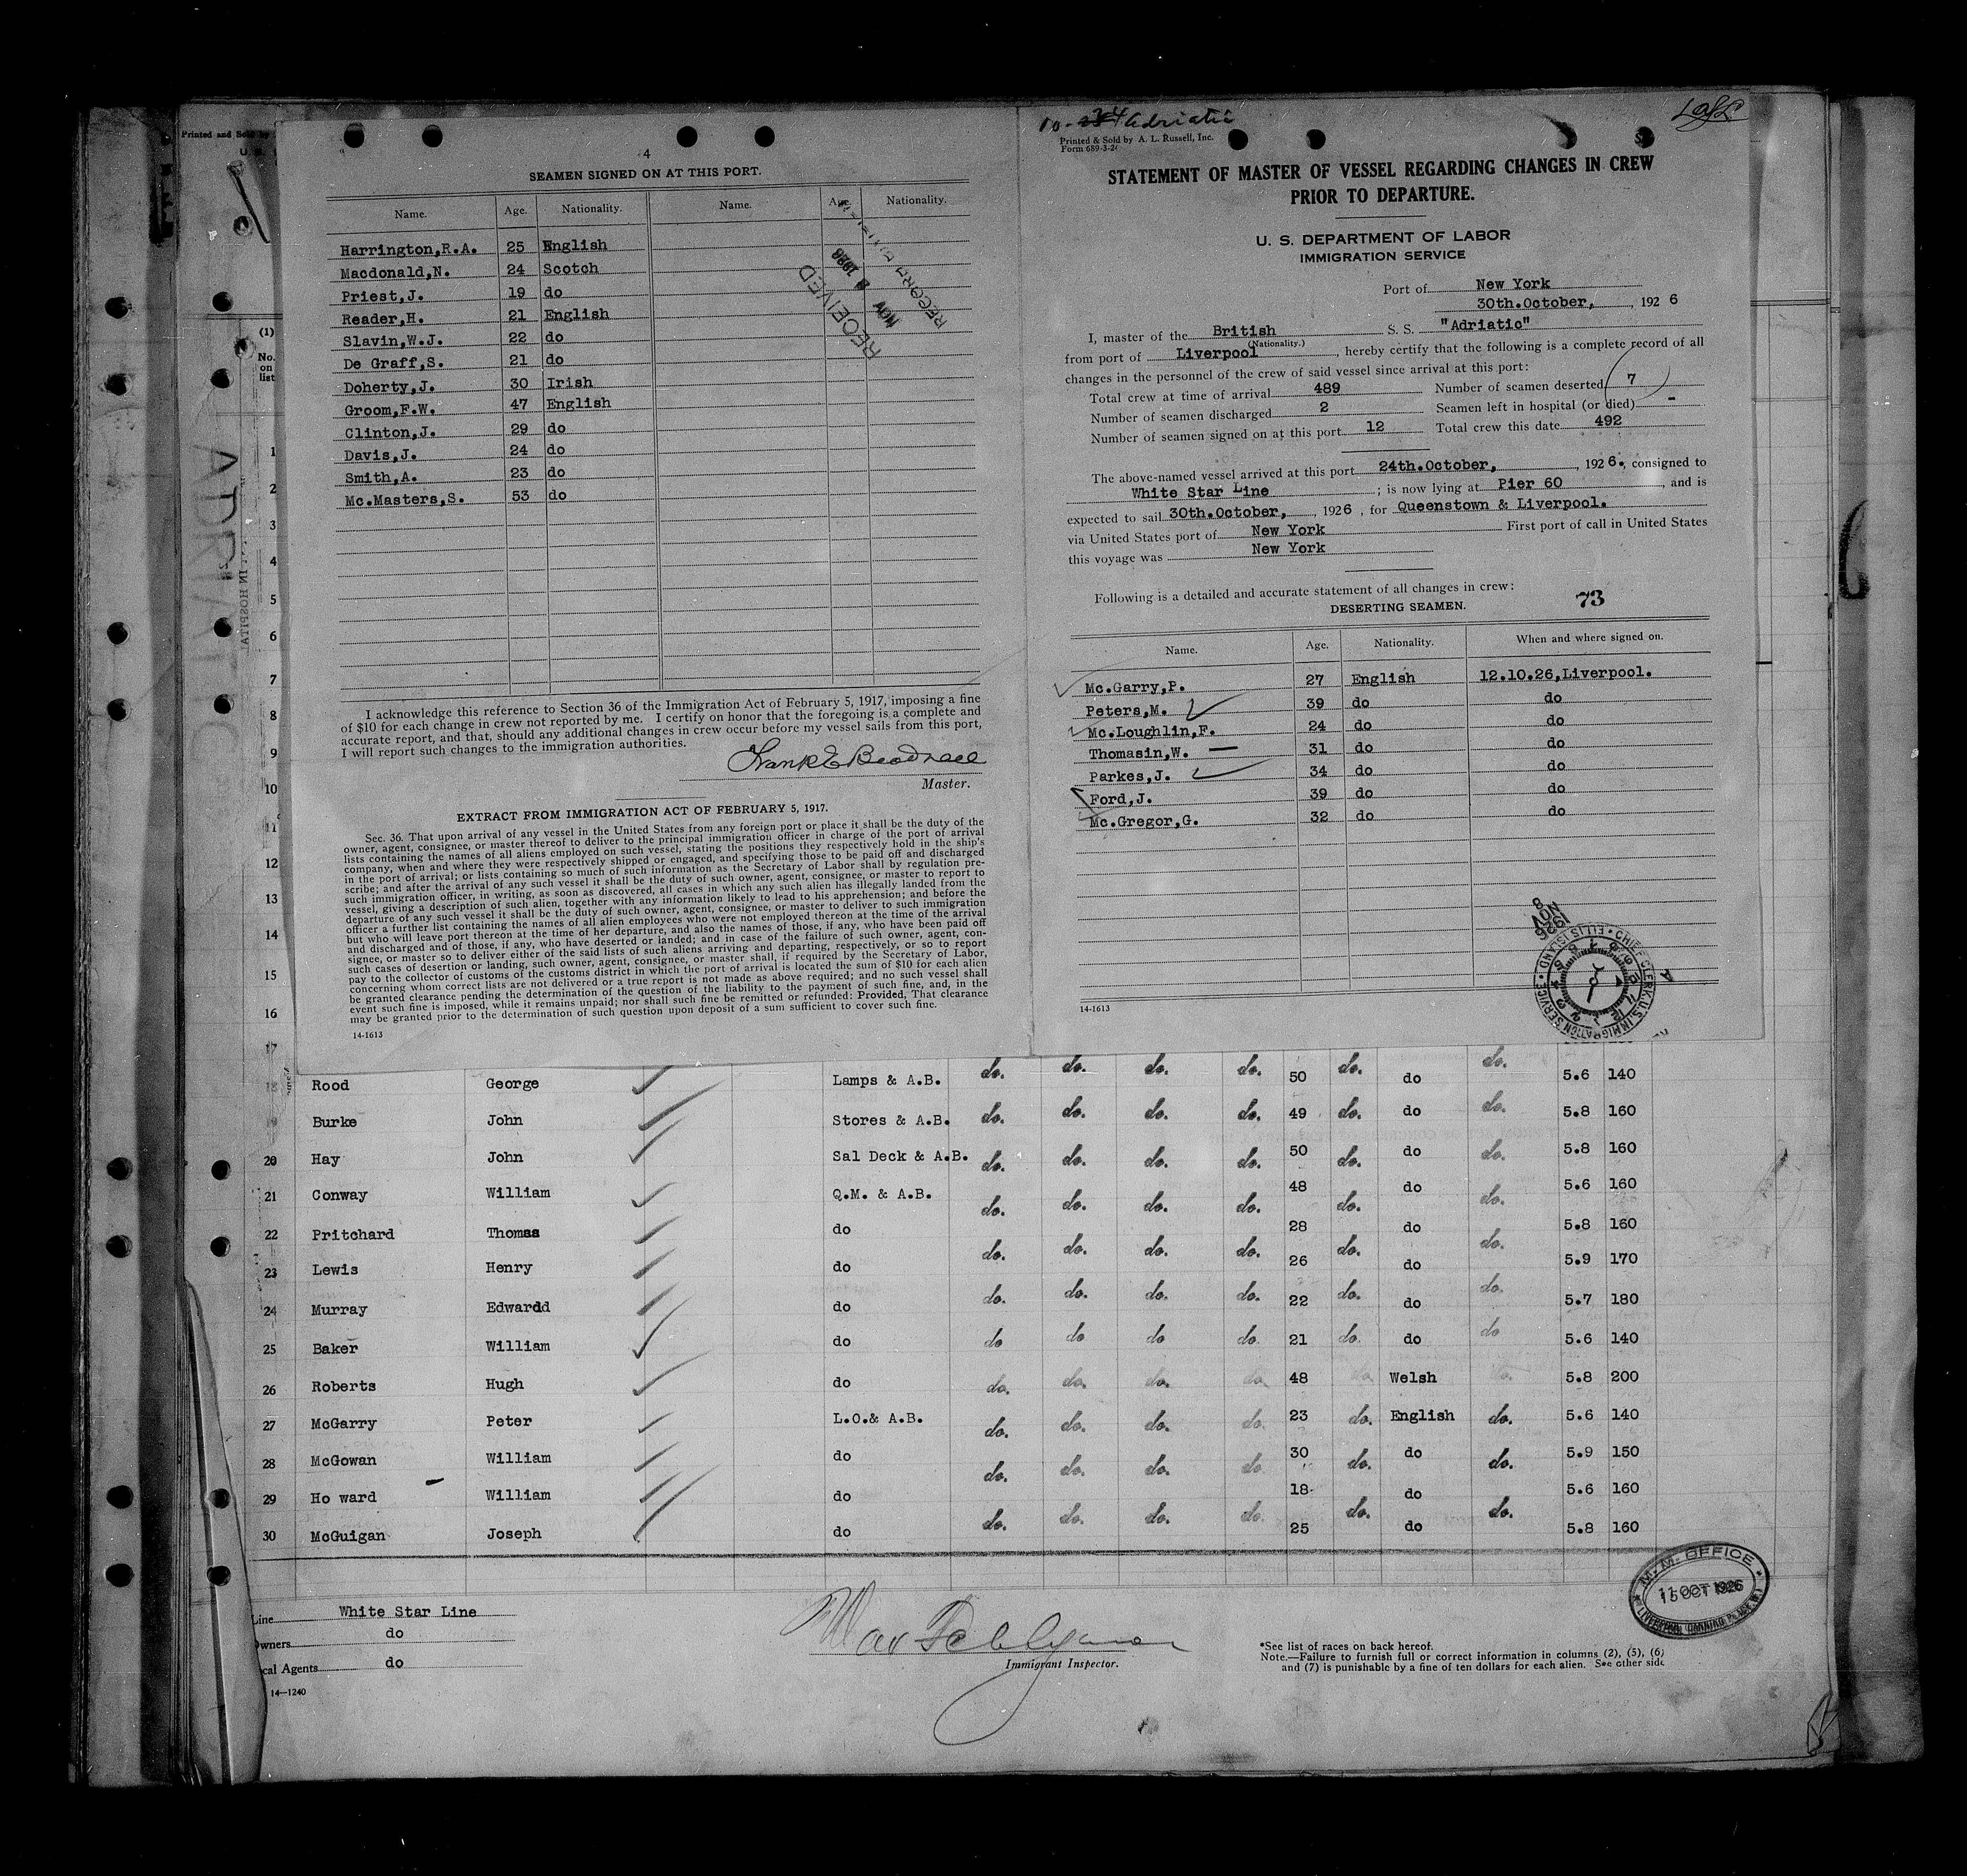 Printed and Sold by
4
SEAMEN SIGNED ON AT THIS PORT.
Name. Age. Nationality. Name. Age. Nationality.
Harrington,R.A. 25 English
Macdonald,N. 24 Scotch
Priest,J. 19 do
Reader,H. 21 English
Slavin,W.J. 22 do
De Graff,S. 21 do
Doherty,J. 30 Irish
Groom,F.W. 47 English
Clinton,J. 29 do
Davis,J. 24 do
Smith,A. 23 do
Mc.Masters,S. 53 do
RECEIVED
NOV 8 1926
I acknowledge this reference to Section 36 of the Immigration Act of February 5, 1917, imposing a fine
of $10 for each change in crew not reported by me. I certify on honor that the foregoing is a complete and
accurate report, and that, should any additional changes in crew occur before my vessel sails from this port,
I will report such changes to the immigration authorities.
Master.
EXTRACT FROM IMMIGRATION ACT OF FEBRUARY 5, 1917.
Sec. 36. That upon arrival of any vessel in the United States from any foreign port or place it shall be the duty of the
owner, agent, consignee, or master thereof to deliver to the principal immigration officer in charge of the port of arrival
lists containing the names of all aliens employed on such vessel, stating the positions they respectively hold in the ship's
company, when and where they were respectively shipped or engaged, and specifying those to be paid off and discharged
in the port of arrival; or lists containing so much of such information as the Secretary of Labor shall by regulation pre-
scribe; and after the arrival of any such vessel it shall be the duty of such owner, agent, consignee, or master to report to
such immigration officer, in writing, as soon as discovered, all cases in which any such alien has illegally landed from the
vessel, giving a description of such alien, together with any information likely to lead to his apprehension; and before the
departure of any such vessel it shall be the duty of such owner, agent, consignee, or master to deliver to such immigration
officer a further list containing the names of all alien employees who were not employed thereon at the time of the arrival
but who will leave port thereon at the time of her departure, and also the names of those, if any, who have been paid off
and discharged and of those, if any, who have deserted or landed; and in case of the failure of such owner, agent, con-
signee, or master so to deliver either of the said lists of such aliens arriving and departing, respectively, or so to report
such cases of desertion or landing, such owner, agent, consignee, or master shall, if required by the Secretary of Labor,
pay to the collector of customs of the customs district in which the port of arrival is located the sum of $10 for each alien
concerning whom correct lists are not delivered or a true report is not made as above required; and no such vessel shall
be granted clearance pending the determination of the question of the liability to the payment of such fine, and, in the
event such fine is imposed, while it remains unpaid; nor shall such fine be remitted or refunded: Provided, That clearance
may be granted prior to the determination of such question upon deposit of a sum sufficient to cover such fine.
14-1613
Adriatic
Printed & Sold by A. L. Russell, Inc.
Form 689-3-24
STATEMENT OF MASTER OF VESSEL REGARDING CHANGES IN CREW
PRIOR TO DEPARTURE.
U. S. DEPARTMENT OF LABOR
IMMIGRATION SERVICE
Port of New York
30th.October, , 192 6
I, master of the British S. S. "Adriatic"
(Nationality.)
from port of Liverpool , hereby certify that the following is a complete record of all
changes in the personnel of the crew of said vessel since arrival at this port:
Total crew at time of arrival 489 Number of seamen deserted 7
Number of seamen discharged 2 Seamen left in hospital (or died) -
Number of seamen signed on at this port 12 Total crew this date 492
The above-named vessel arrived at this port 24th.October, , 192 6., consigned to
White Star Line ; is now lying at Pier 60 , and is
expected to sail 30th.October, , 1926 , for Queenstown & Liverpool.
via United States port of New York First port of call in United States
this voyage was New York
Following is a detailed and accurate statement of all changes in crew:
DESERTING SEAMEN. 73
Name. Age. Nationality. When and where signed on.
Mc.Garry,P. 27 English 12.10.26,Liverpool.
Peters,M. 39 do do
Mc.Loughlin,F. 24 do do
Thomasin,W. 31 do do
Parkes,J. 34 do do
Ford,J. 39 do do
Mc.Gregor,G. 32 do do
8
NOV
1926
CHIEF CLERK, U.S. IMMIGRATION SERVICE • ELLIS ISLAND
14-1613
ADRIATIC
(1)
No.
on
list
1
2
3
4
5
6
7
8
9
10
11
12
13
14
15
16
17
18 Rood George Lamps & A.B. do. do. do. do. 50 do. do do. 5.6 140
19 Burke John Stores & A.B. do. do. do. do. 49 do. do do. 5.8 160
20 Hay John Sal Deck & A.B. do. do. do. do. 50 do. do do. 5.8 160
21 Conway William Q.M. & A.B. do. do. do. do. 48 do. do do. 5.6 160
22 Pritchard Thomas do do. do. do. do. 28 do. do do. 5.8 160
23 Lewis Henry do do. do. do. do. 26 do. do do. 5.9 170
24 Murray Edwardd do do. do. do. do. 22 do. do do 5.7 180
25 Baker William do do do do do. 21 do. do do 5.6 140
26 Roberts Hugh do do. do. do. do. 48 do Welsh do. 5.8 200
27 McGarry Peter L.O.& A.B. do. do. do. do. 23 do. English do. 5.6 140
28 McGowan William do do. do. do. do. 30 do. do do. 5.9 150
29 Ho ward William do 18 do 5.6 160
30 McGuigan Joseph do do. do. do. do. 25 do. do do. 5.8 160
Line White Star Line
Owners do
cal Agents do
14-1240
Immigrant Inspector.
*See list of races on back hereof.
Note.—Failure to furnish full or correct information in columns (2), (5), (6)
and (7) is punishable by a fine of ten dollars for each alien. See other side
M. M. OFFICE
OCT 1926